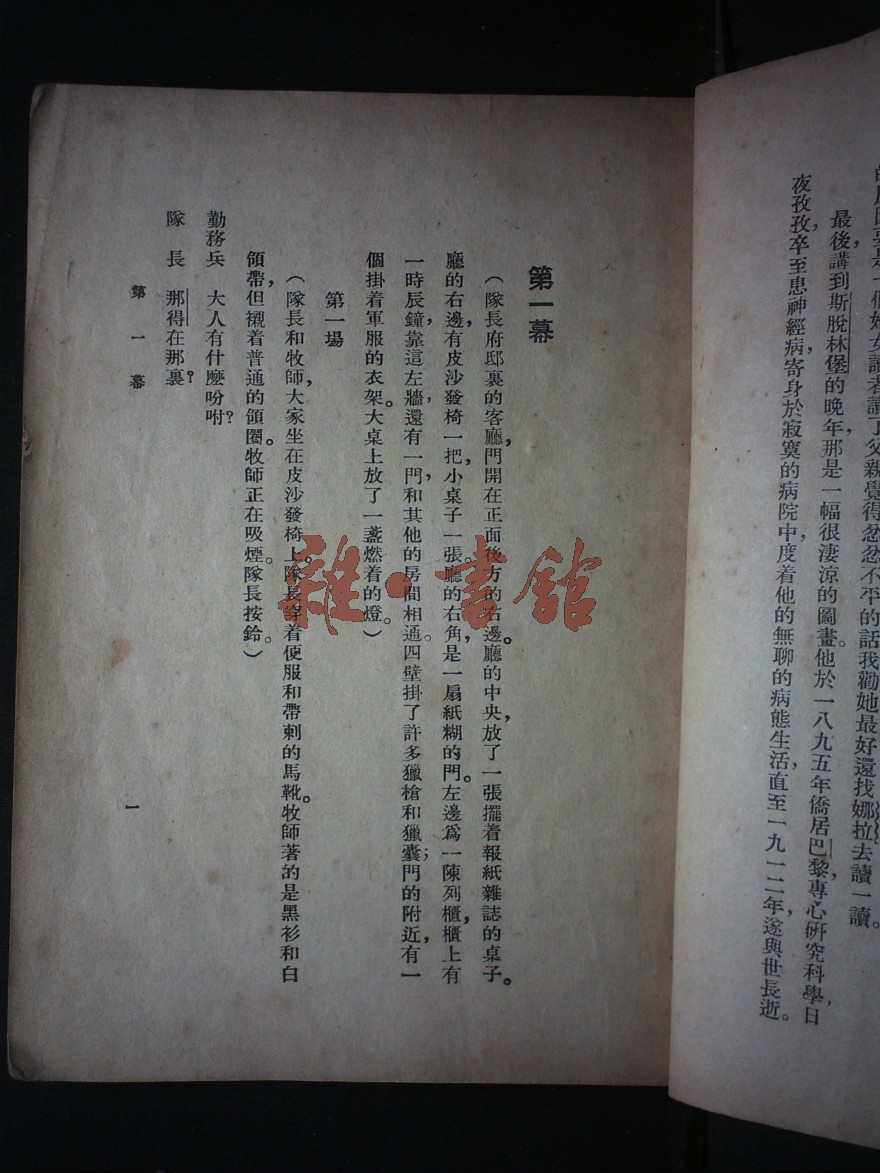 父親覺得忿忿不平的話我勸她最好還找娜拉去讀一讀。
最後，講到斯脫林堡的晚年，那是一幅很淒涼的圖畫。他於一八九五年僑居巴黎，專心研究科學，日
夜孜孜，卒至患神經病，寄身於寂寞的病院中，度着他的無聊的病態生活，直至一九一二年，遂與世長逝。
第一幕
（隊長府邸裏的客廳，門開在正面後方的右邊。廳的中央，放了一張擺着報紙雜誌的桌子。
廳的右邊，有皮沙發椅一把，小桌子一張。廳的右角，是一扇紙糊的門。左邊爲一陳列櫃，櫃上有
一時辰鐘，靠這左牆，還有一門，和其他的房間相通。四壁掛了許多獵槍和獵囊；門的附近，有一
個掛着軍服的衣架。大桌上放了一盞燃着的燈。）
第一場
（隊長和牧師，大家坐在皮沙發椅上。隊長穿着便服和帶刺的馬靴。牧師著的是黑衫和白
領帶，但襯着普通的領圈。牧師正在吸煙。隊長按鈴。）
勤務兵　大人有什麼吩咐？
隊　長　那得在那裏？
第一幕
一
雜·書館